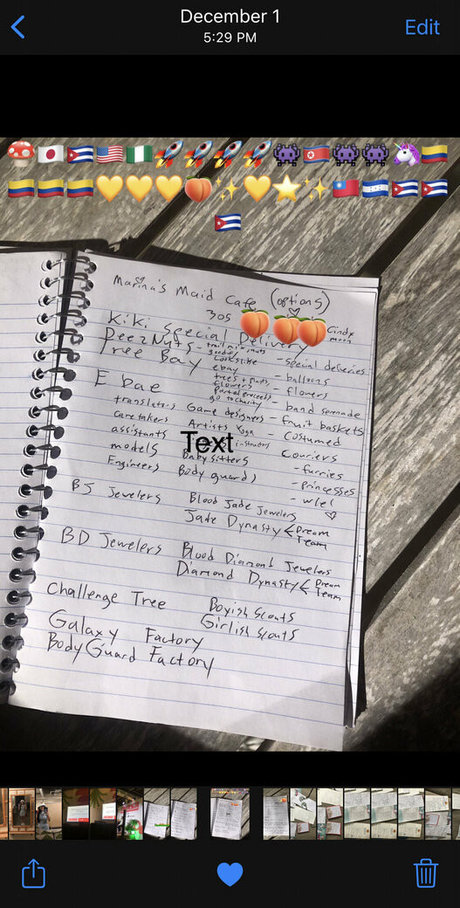 December 1
5:29 PM
Edit
Marina's Maid Cafe (options)
305
Cindy moon
Kiki Special Delivery
DeezNuts - trail mix, nuts
- special deliveries
Tree Bay
- balloons
ebay
trees + plants
flowers
- flowers
go to charity
- band serenade
E bae
- fruit baskets
translators Game designers - Costumed
caretakers Artists Yoga
couriers
Text
assistants Baby sitters
- furries
models Body guards
- Princesses
Engineers
BJ Jewelers Blood Jade Jewelers
Jade Dynasty ← Dream Team
BD Jewelers Blood Diamond Jewelers
Diamond Dynasty ← Dream Team
Challenge Tree Boyish Scouts
Girlish Scouts
Galaxy Factory
BodyGuard Factory